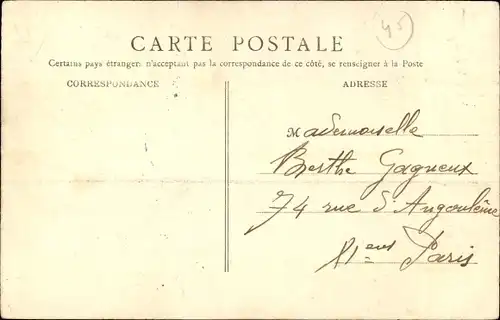 45
CARTE POSTALE
Certains pays étrangers n'acceptant pas la correspondance de ce côté, se renseigner à la Poste
CORRESPONDANCE
ADRESSE
Mademoiselle
Berthe Gagneux
74 rue d'Angoulême
XIème Paris